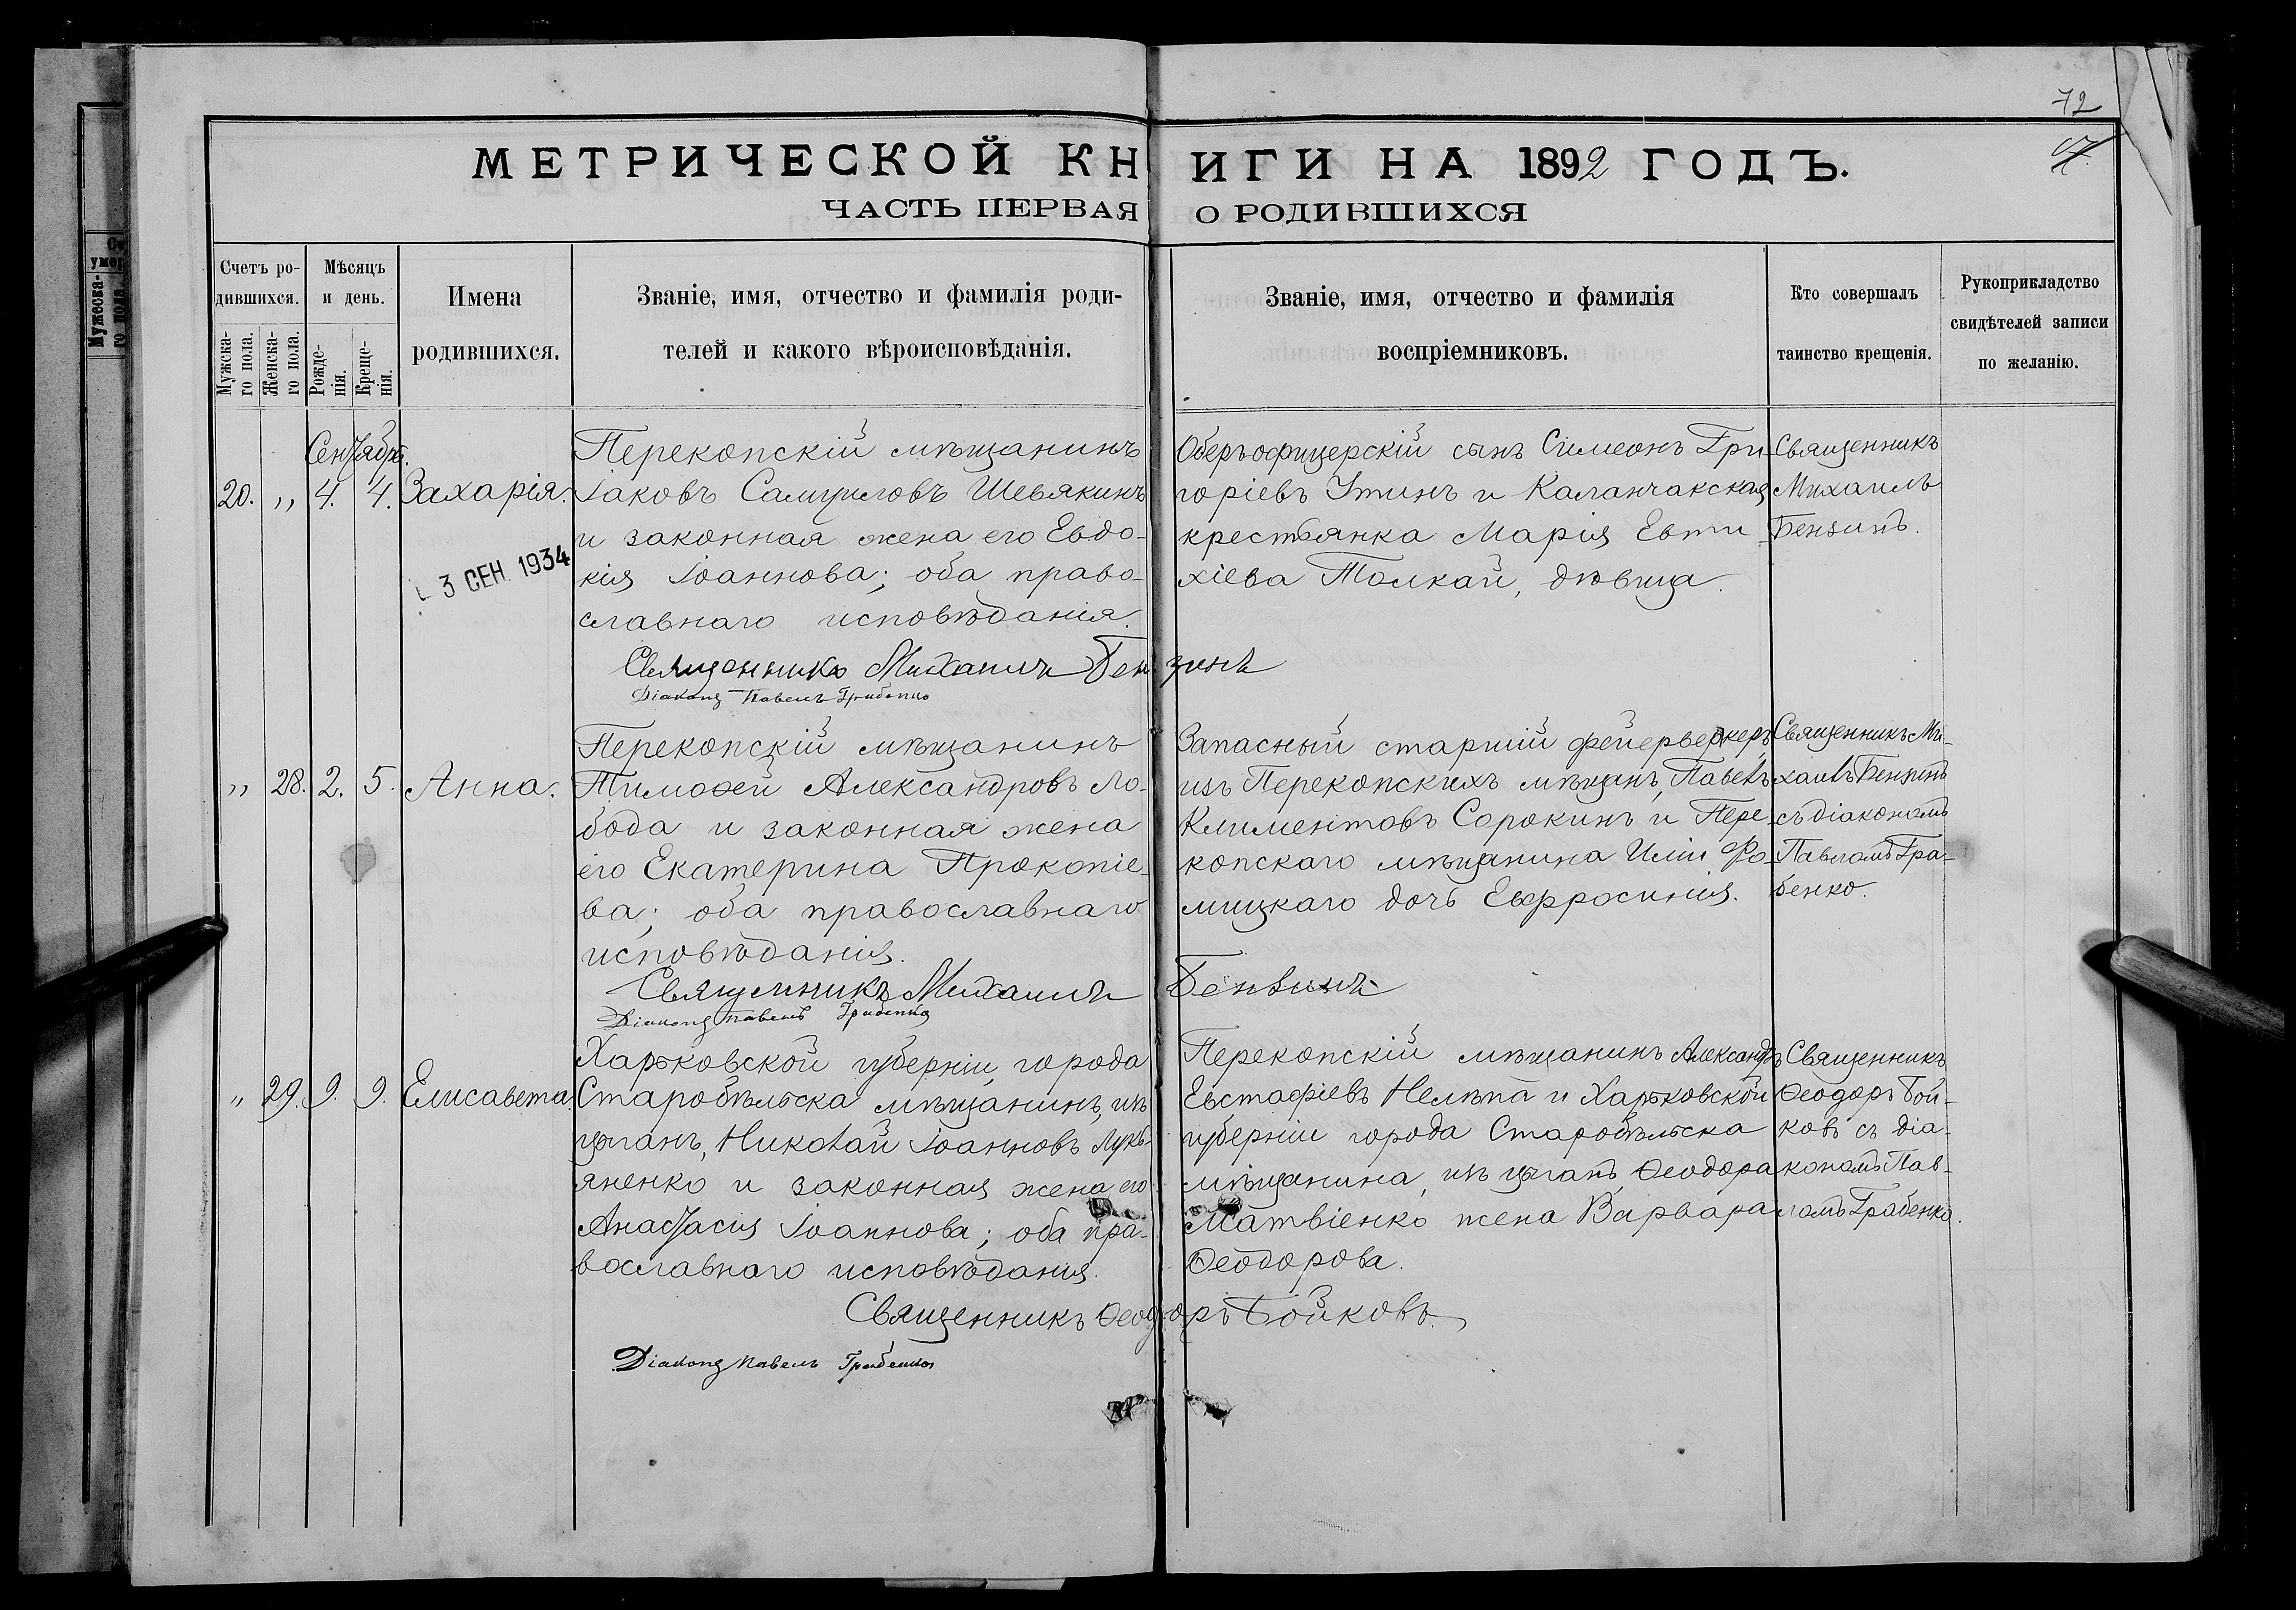 72
МЕТРИЧЕСКОЙ КНИГИ НА 1892 ГОДЪ.
ЧАСТЬ ПЕРВАЯ О РОДИВШИХСЯ
Счетъ ро-
дившихся.
Мужска-
го пола.
Женска-
го пола.
Мѣсяцъ
и день.
Рожде-
нія.
Креще-
нія.
Имена
родившихся.
Званіе, имя, отчество и фамилія роди-
телей и какого вѣроисповѣданія.
Званіе, имя, отчество и фамилія
воспріемниковъ.
Кто совершалъ
таинство крещенія.
Рукоприкладство
свидѣтелей записи
по желанію.
Сентябрь.
20. „ 4. 4. Захарія.
3 СЕН. 1934
Перекопскій мѣщанинъ
Іаковъ Самуиловъ Шевякинъ
и законная жена его Евдо-
кія Іоаннова; оба право-
славнаго исповѣданія.
Оберъофицерскій сынъ Симеонъ Гри-
горіевъ Утинъ и Каланчакская
крестьянка Марія Евти-
хіева Толкай, дѣвица.
Священникъ
Михаилъ
Бензинъ.
Священникъ Михаилъ Бензинъ
Діаконъ Павелъ Грабенко
„ 28. 2. 5. Анна.
Перекопскій мѣщанинъ
Тимоѳей Александровъ Ло-
бода и законная жена
его Екатерина Прокопіе-
ва; оба православнаго
исповѣданія.
Запасный старшій фейерверкеръ
изъ Перекопскихъ мѣщанъ, Павелъ
Климентовъ Сорокинъ и Пере-
копскаго мѣщанина Иліи Фо-
мицкаго дочь Евфросинія.
Священникъ Ми-
хаилъ Бензинъ
съ діакономъ
Павломъ Гра-
бенко.
Священникъ Михаилъ Бензинъ
Діаконъ Павелъ Грабенко
„ 29. 9. 9. Елисавета.
Харьковской губерніи, города
Старобѣльска мѣщанинъ, изъ
цыганъ, Николай Іоанновъ Лукь-
яненко и законная жена его
Анастасія Іоаннова; оба пра-
вославнаго исповѣданія.
Перекопскій мѣщанинъ Александръ
Евстафіевъ Нелѣпа и Харьковской
губерніи города Старобѣльска
мѣщанина, изъ цыганъ, Ѳеодора
Матвіенко жена Варвара
Ѳеодорова.
Священникъ
Ѳеодоръ Бой-
ковъ съ діа-
кономъ Пав-
ломъ Грабенко.
Священникъ Ѳеодоръ Бойковъ.
Діаконъ Павелъ Грабенко